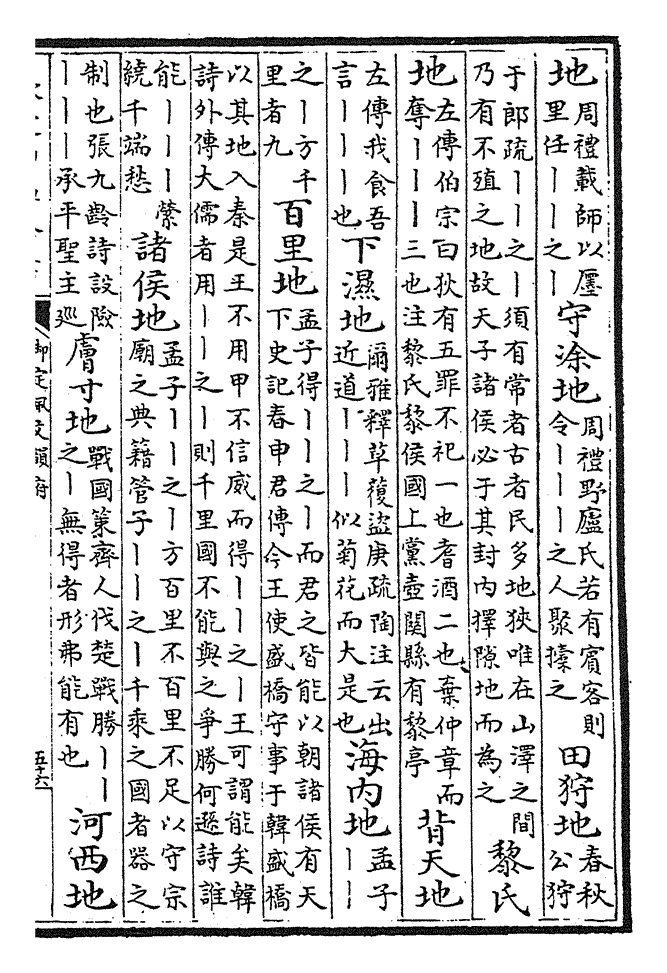 地周禮載師以廛里任丨丨之丨守涂地周禮野廬氏若有賓客則令丨丨丨之人聚㯓之田狩地春秋公狩
于郎疏丨丨之丨須有常者古者民多地狹唯在山澤之間乃有不殖之地故天子諸侯必于其封内擇隙地而為之黎氏
地左傳伯宗曰狄有五罪不祀一也耆酒二也棄仲章而奪丨丨丨三也注黎氏黎侯國上黨壺關縣有黎亭背天地
左傳我食吾言丨丨丨也下濕地爾雅釋草蕧盜庚疏陶注云出近道丨丨丨似菊花而大是也海内地孟子丨丨
之丨方千里者九百里地孟子得丨丨之丨而君之皆能以朝諸侯有天下史記春申君傳今王使盛橋守事于韓盛橋
以其地入秦是王不用甲不信威而得丨丨之丨王可謂能矣韓詩外傳大儒者用丨丨之丨則千里國不能與之爭勝何遜詩誰
能丨丨丨縈繞千端愁諸侯地孟子丨丨之丨方百里不百里不足以守宗廟之典籍管子丨丨之丨千乘之國者器之
制也張九齡詩設險丨丨丨承平聖主巡膚寸地戰國策齊人伐楚戰勝丨丨之丨無得者形弗能有也河西地
御定佩文韻府
五十六